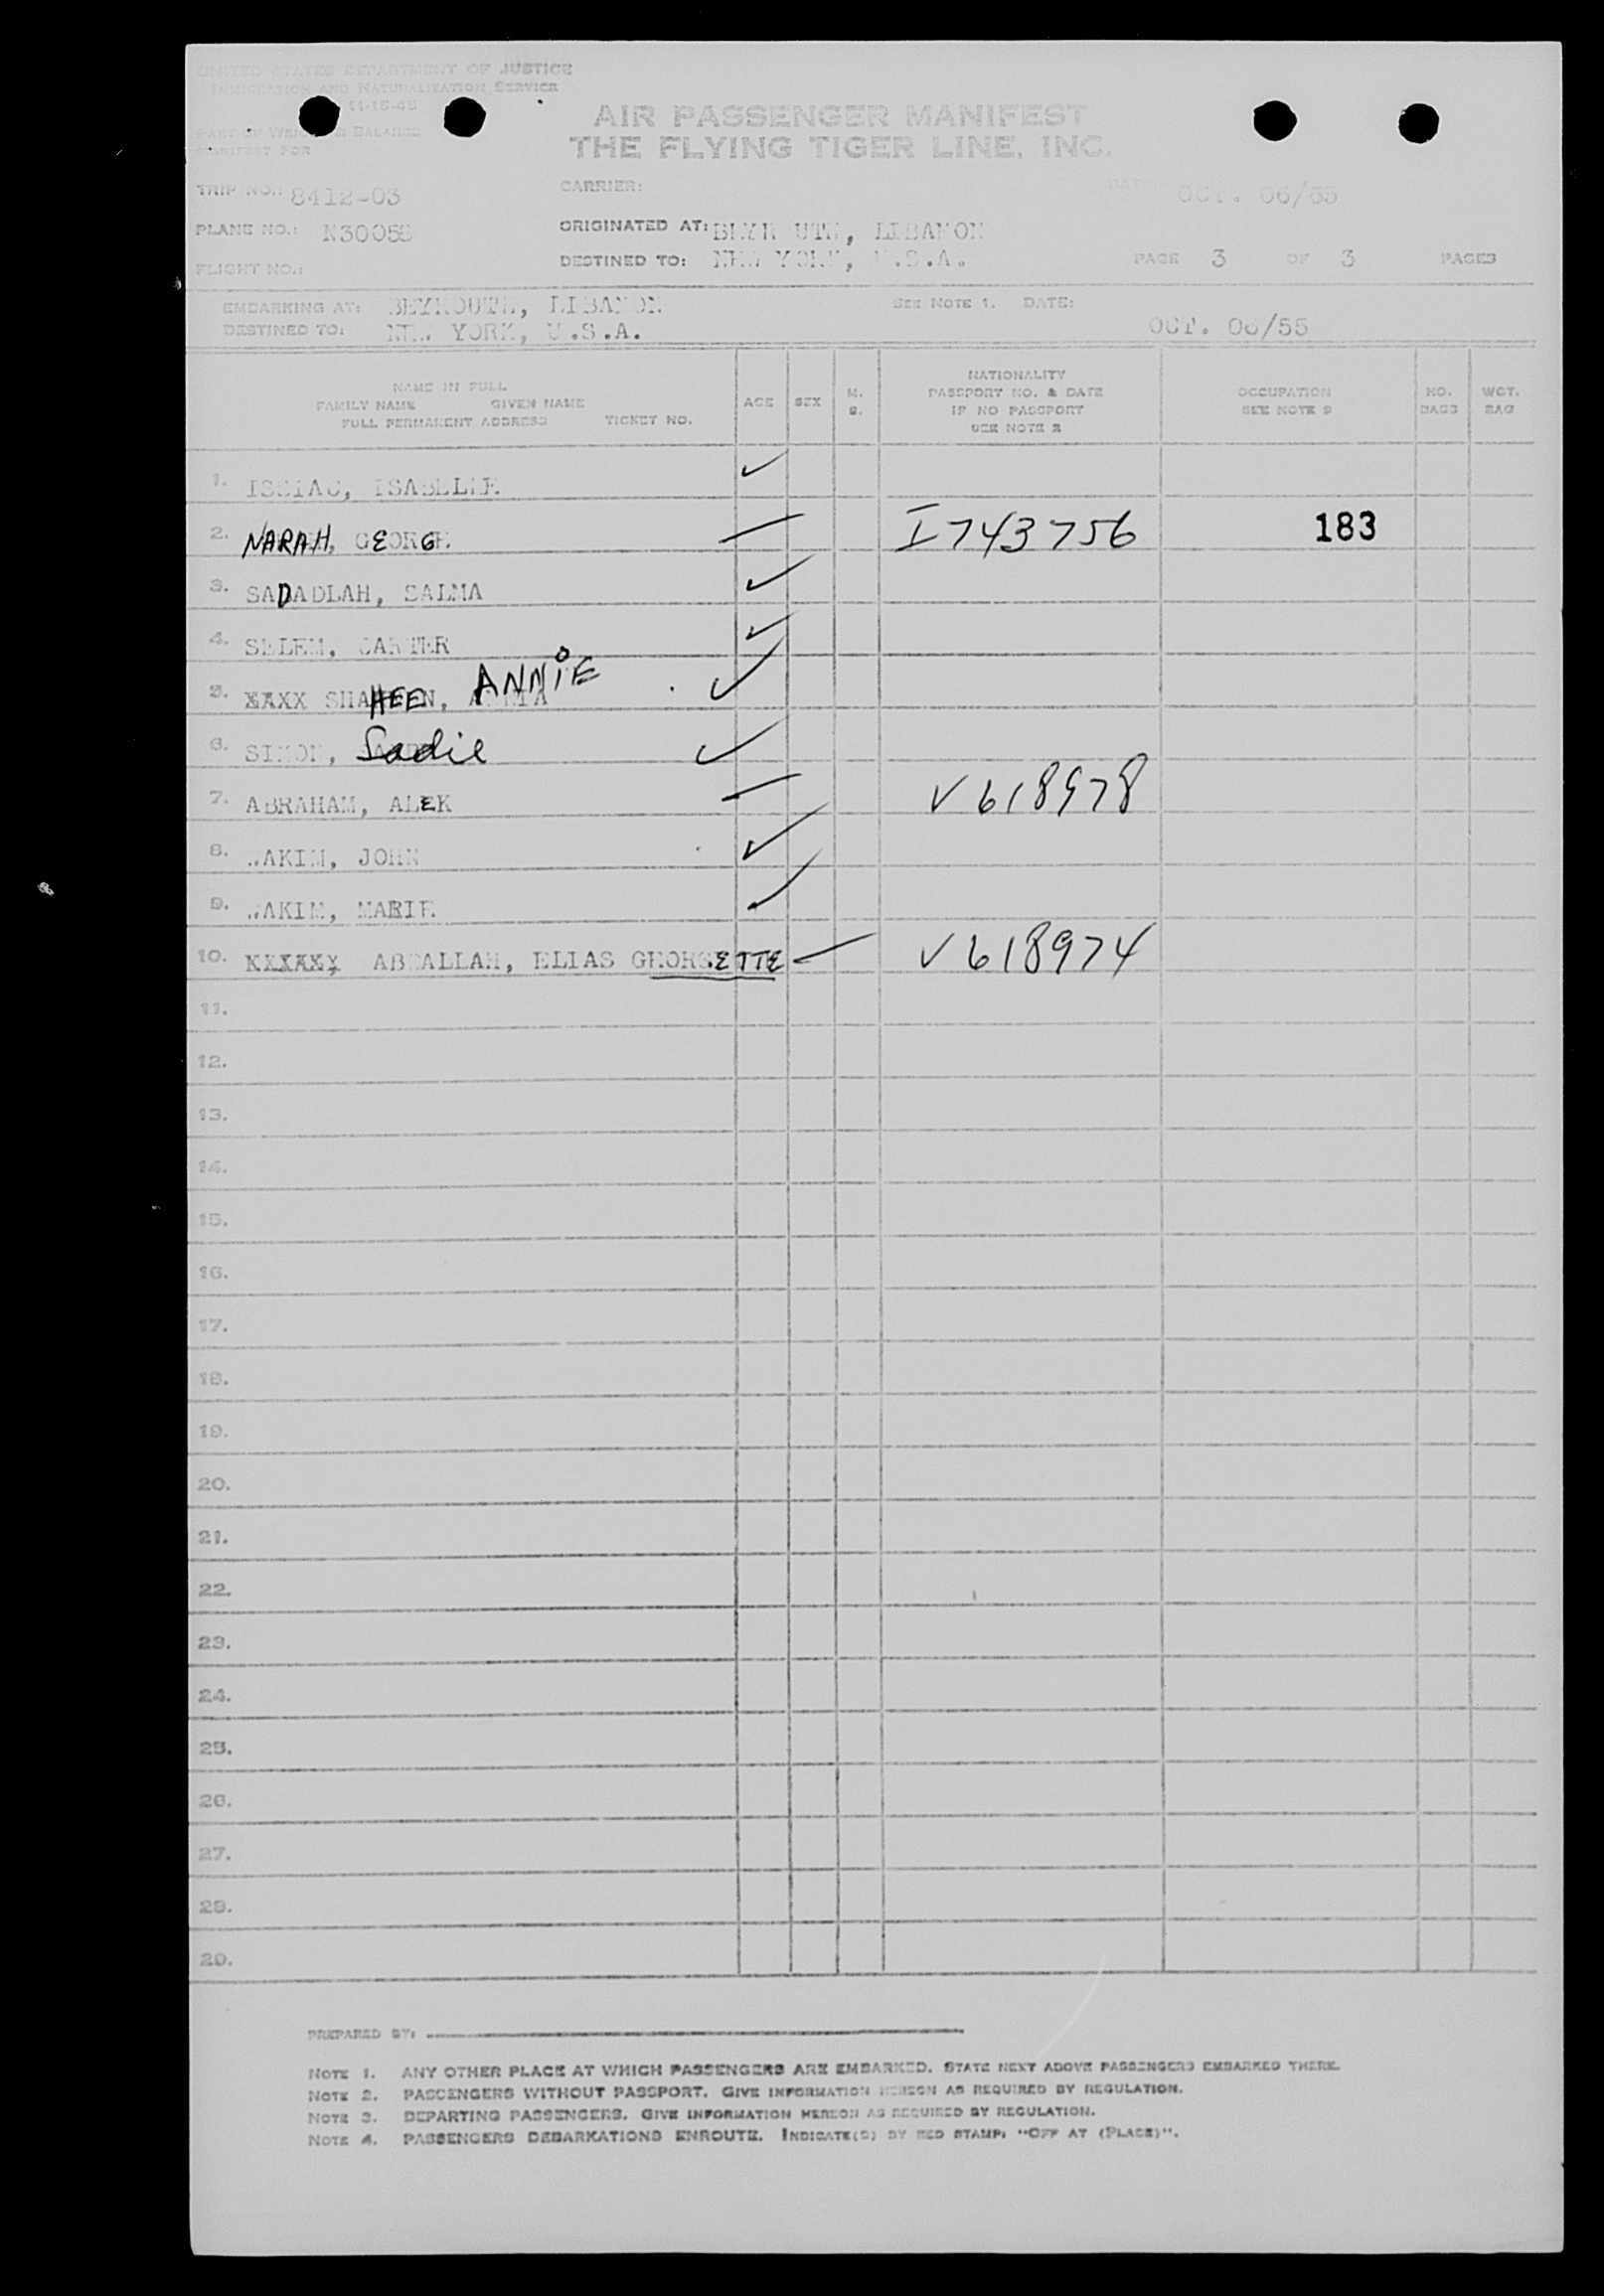 UNITED STATES DEPARTMENT OF JUSTICE
IMMIGRATION AND NATURALIZATION SERVICE
11-15-45
PART OF WEIGHT & BALANCE
MANIFEST FOR
AIR PASSENGER MANIFEST
THE FLYING TIGER LINE, INC.
TRIP NO.: 8412-03 CARRIER: DATE OCT. 06/55
PLANE NO.: ORIGINATED AT: BEYROUTH, LIBANON
FLIGHT NO.: DESTINED TO: NEW YORK, U.S.A. PAGE 3 OF 3 PAGES
EMBARKING AT: BEYROUTH, LIBANON SEE NOTE 1. DATE:
DESTINED TO: NEW YORK, U.S.A. OCT. 06/55
NAME IN FULL
FAMILY NAME GIVEN NAME
FULL PERMANENT ADDRESS TICKET NO.
AGE SEX M. S.
NATIONALITY
PASSPORT NO. & DATE
IF NO PASSPORT
SEE NOTE 2
OCCUPATION
SEE NOTE 3
NO. BAGS
WGT. BAG
1. ISABELLE ✓
2. NARAH, GEORGE — I743756 183
3. SADADLAH, SALMA ✓
4. SELEM, ✓
5. XXXX SHAHEEN, ANNIE ✓
6. SIMON, Sadie ✓
7. ABRAHAM, ALEK — V618978
8. WAKIM, JOHN ✓
9. WAKIM, MARIE ✓
10. XXXXXX ABDALLAH, ELIAS GEORGETTE — V618974
11.
12.
13.
14.
15.
16.
17.
18.
19.
20.
21.
22.
23.
24.
25.
26.
27.
28.
29.
PREPARED BY:
NOTE 1. ANY OTHER PLACE AT WHICH PASSENGERS ARE EMBARKED. STATE NEXT ABOVE PASSENGERS EMBARKED THERE.
NOTE 2. PASSENGERS WITHOUT PASSPORT. GIVE INFORMATION HEREON AS REQUIRED BY REGULATION.
NOTE 3. DEPARTING PASSENGERS. GIVE INFORMATION HEREON AS REQUIRED BY REGULATION.
NOTE 4. PASSENGERS DEBARKATIONS ENROUTE. INDICATE(D) BY RED STAMP: "OFF AT (PLACE)".